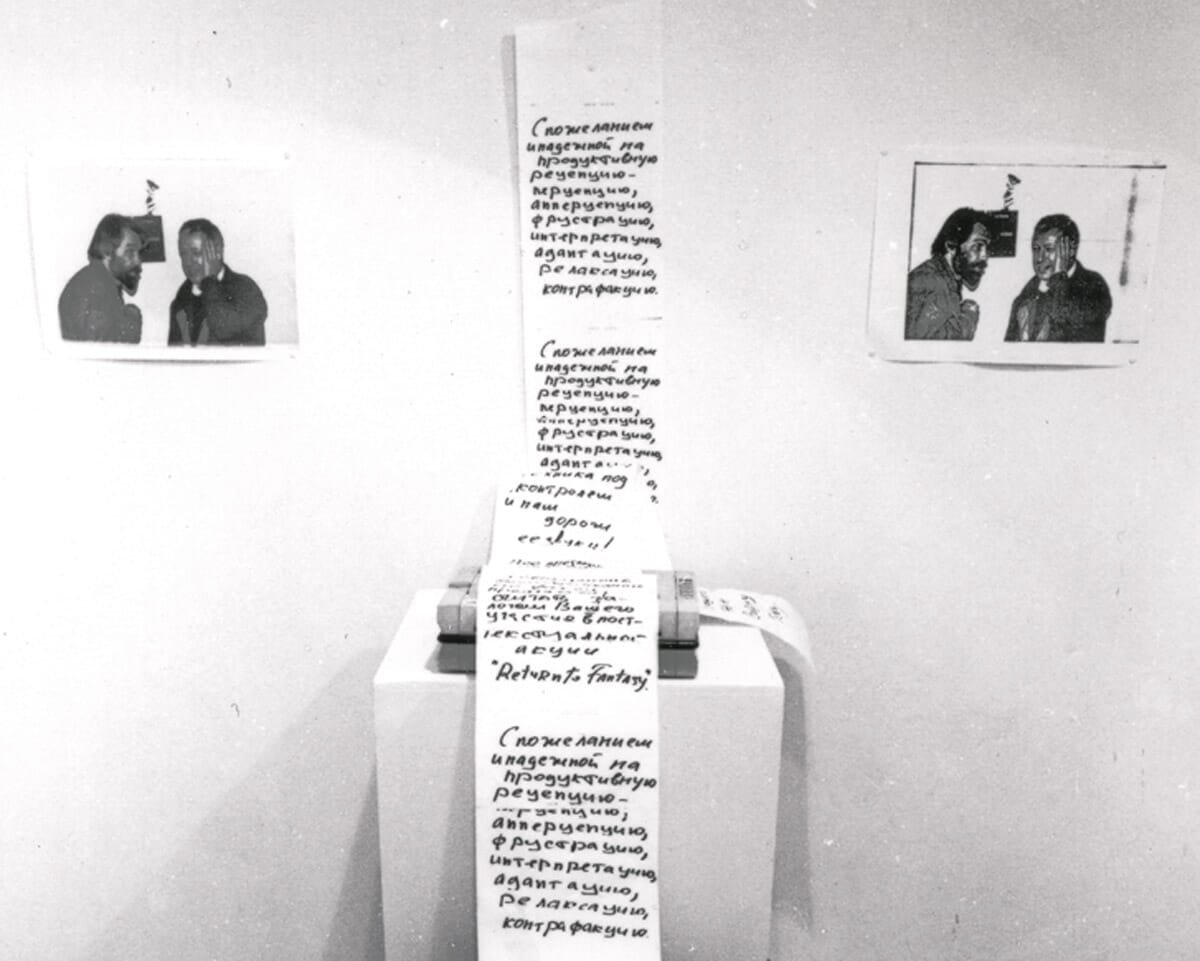 С пожеланием
и надежной на
продуктивную
рецепцию-
перцепцию,
апперцепцию,
фрустрацию,
интерпретацию,
адаптацию,
релаксацию,
контрафакцию.
С пожеланием
и надежной на
продуктивную
рецепцию-
перцепцию,
апперцепцию,
фрустрацию,
интерпретацию,
под
контролем
и нам
дороги
ее звуки!
считать за-
логом Вашего
участие в пост-
текстуальной
акции
"Return to Fantasy".
С пожеланием
и надежной на
продуктивную
рецепцию-
перцепцию,
апперцепцию,
фрустрацию,
интерпретацию,
адаптацию,
релаксацию,
контрафакцию.